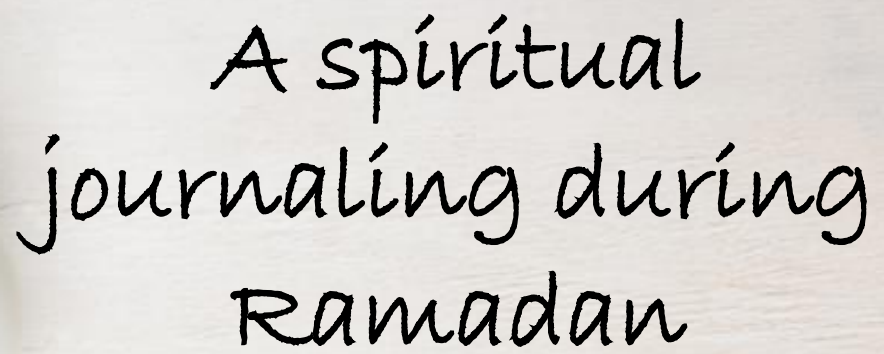 A spiritual
journaling during
Ramadan